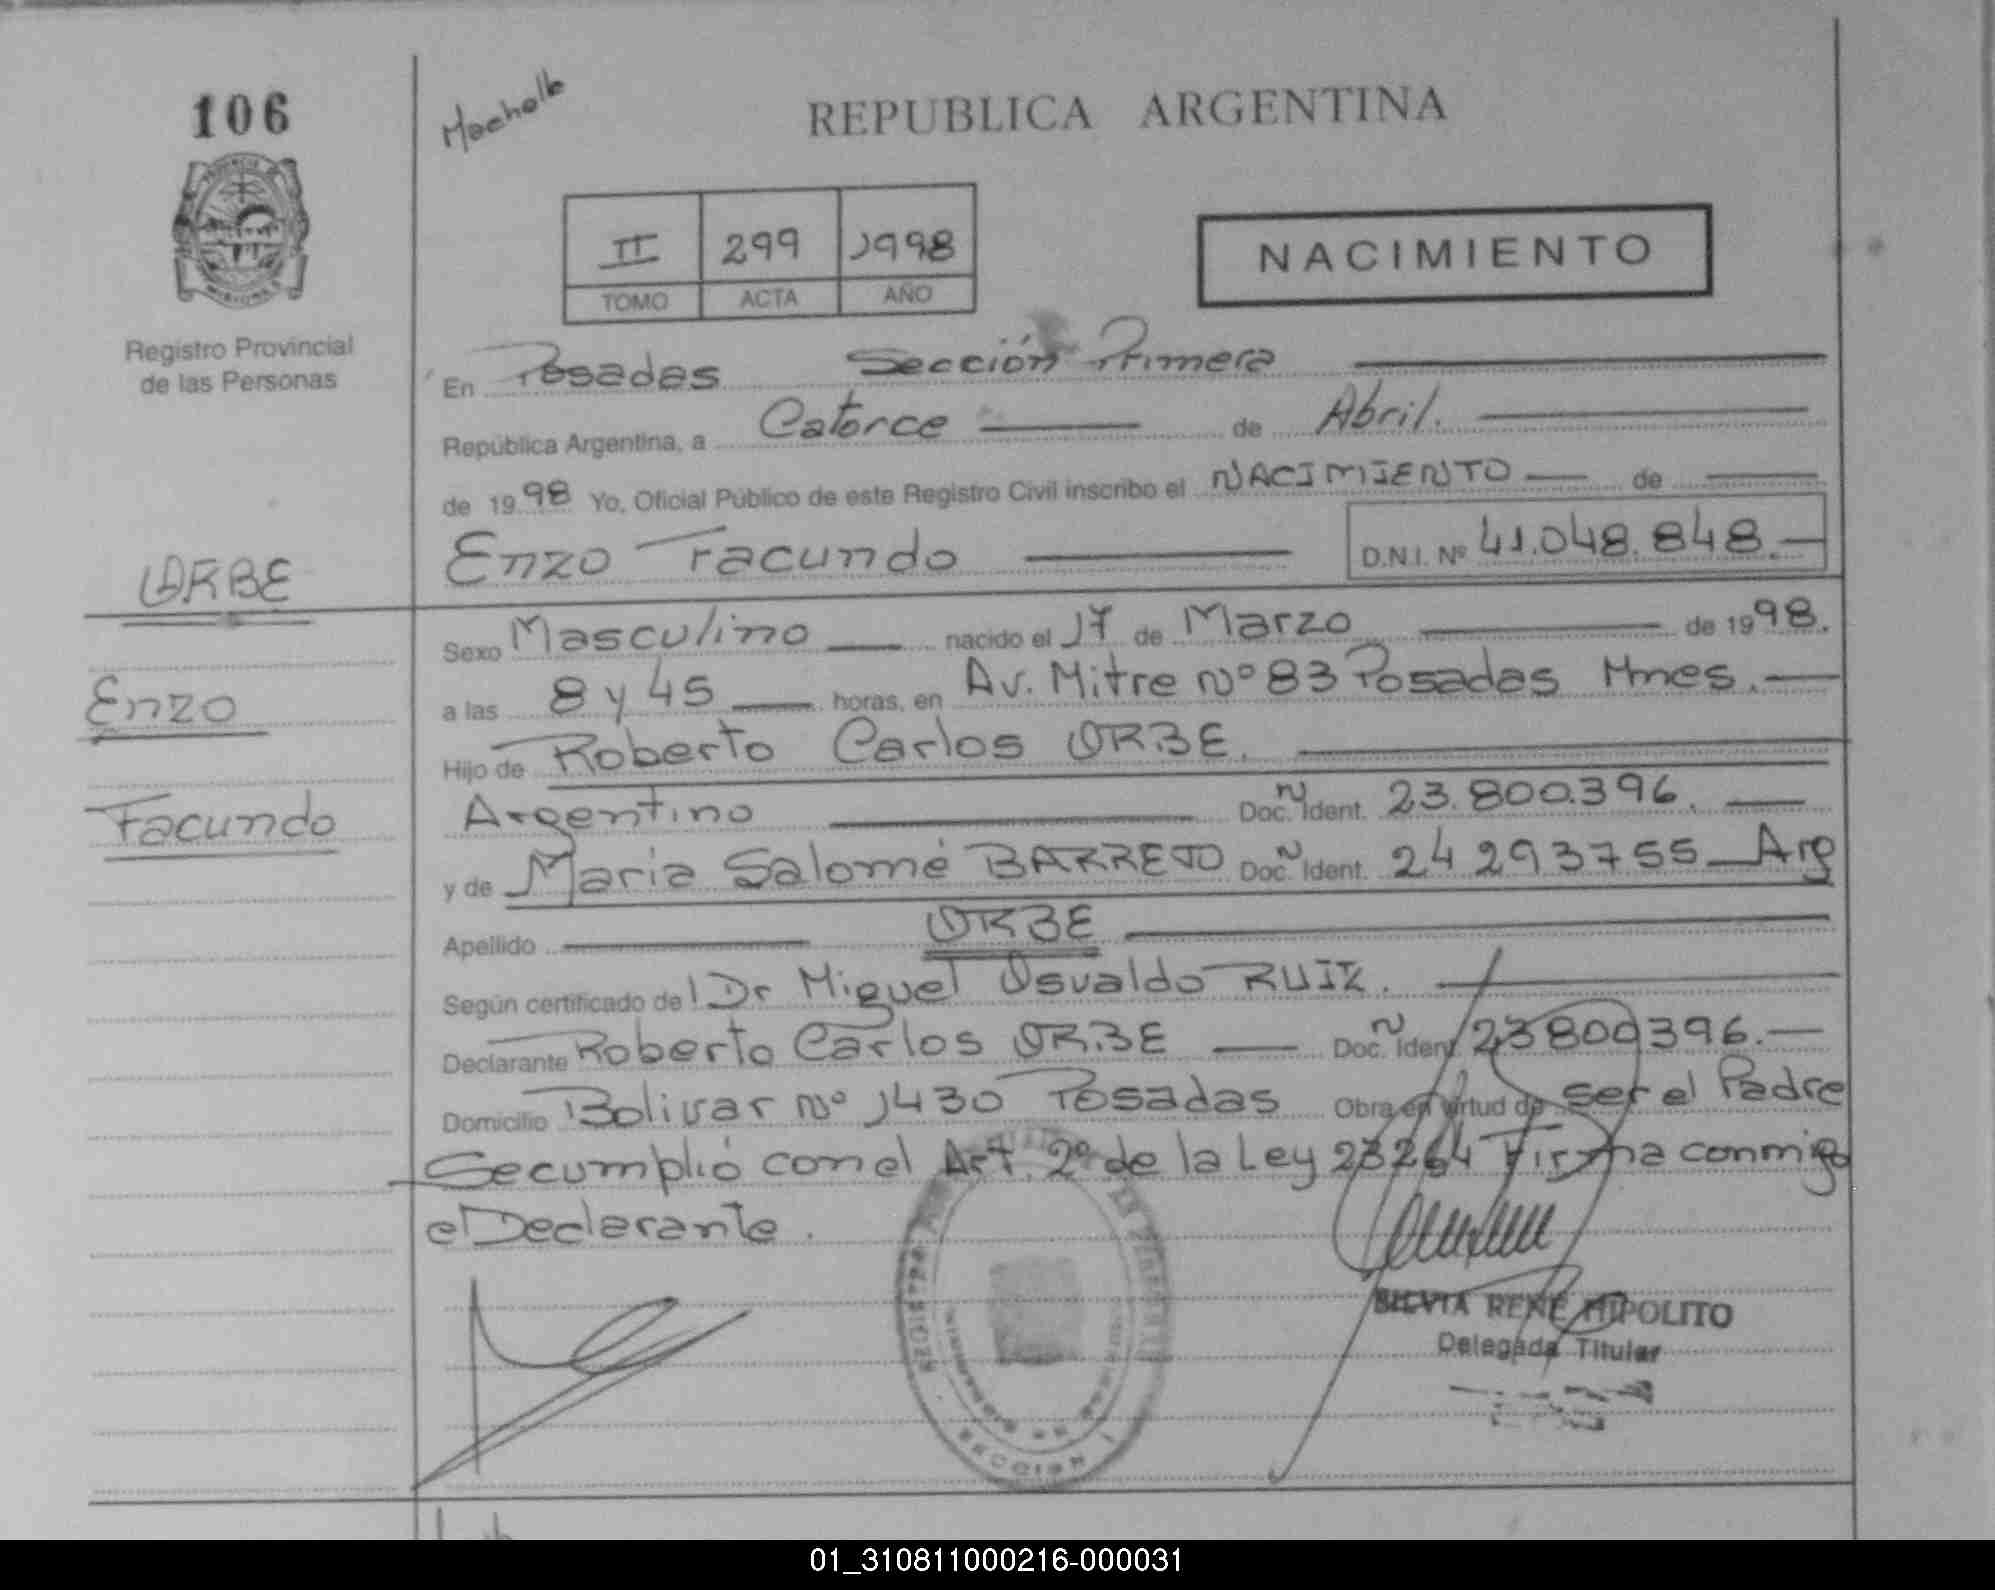 106
Registro Provincial
de las Personas
ORBE
Enzo
Facundo
REPUBLICA ARGENTINA
II 299 1998
TOMO ACTA AÑO
NACIMIENTO
En Posadas Sección Primera
República Argentina, a Catorce de Abril.
de 1998 Yo, Oficial Público de este Registro Civil inscribo el NACIMIENTO de
Enzo Facundo D.N.I. Nº 41.048.848.
Sexo Masculino nacido el 17 de Marzo de 1998.
a las 8 y 45 horas, en Av. Mitre Nº 83 Posadas Mnes.
Hijo de Roberto Carlos ORBE.
Argentino Doc. N Ident. 23.800.396.
y de Maria Salomé BARRETO Doc. N Ident. 24 293755 Arg
Apellido ORBE
Según certificado del Dr Miguel Osvaldo RUIZ.
Declarante Roberto Carlos ORBE Doc. N Ident. 23800396.
Domicilio Bolivar Nº 1430 Posadas Obra en virtud de ser el Padre
Se cumplió con el Art. 2º de la Ley 23264 Firma conmigo
el Declarante.
SILVIA RENE HIPOLITO
Delegada Titular
SECCION 1
01_310811000216-000031